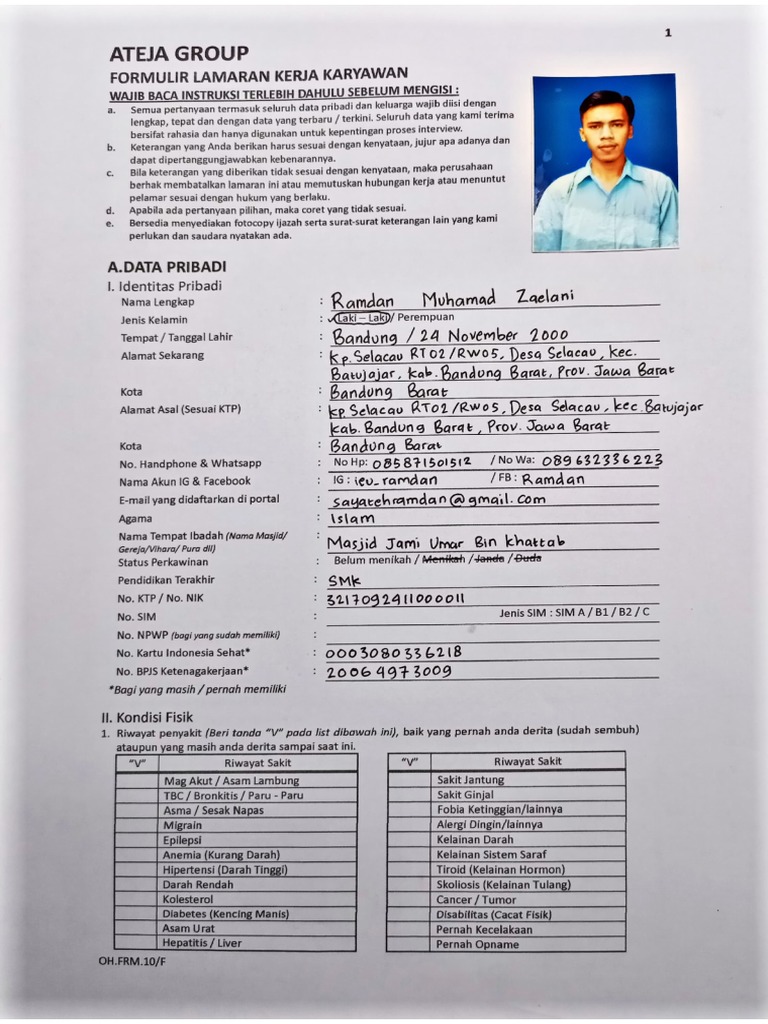 1
ATEJA GROUP
FORMULIR LAMARAN KERJA KARYAWAN
WAJIB BACA INSTRUKSI TERLEBIH DAHULU SEBELUM MENGISI :
a. Semua pertanyaan termasuk seluruh data pribadi dan keluarga wajib diisi dengan
lengkap, tepat dan dengan data yang terbaru / terkini. Seluruh data yang kami terima
bersifat rahasia dan hanya digunakan untuk kepentingan proses interview.
b. Keterangan yang Anda berikan harus sesuai dengan kenyataan, jujur apa adanya dan
dapat dipertanggungjawabkan kebenarannya.
c. Bila keterangan yang diberikan tidak sesuai dengan kenyataan, maka perusahaan
berhak membatalkan lamaran ini atau memutuskan hubungan kerja atau menuntut
pelamar sesuai dengan hukum yang berlaku.
d. Apabila ada pertanyaan pilihan, maka coret yang tidak sesuai.
e. Bersedia menyediakan fotocopy ijazah serta surat-surat keterangan lain yang kami
perlukan dan saudara nyatakan ada.
A.DATA PRIBADI
I. Identitas Pribadi
Nama Lengkap : Ramdan Muhamad Zaelani
Jenis Kelamin : Laki – Laki / Perempuan
Tempat / Tanggal Lahir : Bandung / 24 November 2000
Alamat Sekarang : kp. Selacau RT02/RW05, Desa Selacau, kec.
Batujajar, kab. Bandung Barat, Prov. Jawa Barat
Kota : Bandung Barat
Alamat Asal (Sesuai KTP) : kp Selacau RT02/RW05, Desa Selacau, kec. Batujajar
kab. Bandung Barat, Prov. Jawa Barat
Kota : Bandung Barat
No. Handphone & Whatsapp : No Hp: 085871501512 / No Wa: 089632336223
Nama Akun IG & Facebook : IG : ieu_ramdan / FB : Ramdan
E-mail yang didaftarkan di portal : sayatehramdan@gmail.com
Agama : Islam
Nama Tempat Ibadah (Nama Masjid/ : Masjid Jami Umar Bin Khattab
Gereja/Vihara/ Pura dll)
Status Perkawinan : Belum menikah / Menikah / Janda / Duda
Pendidikan Terakhir : SMK
No. KTP / No. NIK : 3217092411000011
No. SIM : Jenis SIM : SIM A / B1 / B2 / C
No. NPWP (bagi yang sudah memiliki) :
No. Kartu Indonesia Sehat* : 0003080336218
No. BPJS Ketenagakerjaan* : 20064973009
*Bagi yang masih / pernah memiliki
II. Kondisi Fisik
1. Riwayat penyakit (Beri tanda "V" pada list dibawah ini), baik yang pernah anda derita (sudah sembuh)
ataupun yang masih anda derita sampai saat ini.
"V" Riwayat Sakit
Mag Akut / Asam Lambung
TBC / Bronkitis / Paru - Paru
Asma / Sesak Napas
Migrain
Epilepsi
Anemia (Kurang Darah)
Hipertensi (Darah Tinggi)
Darah Rendah
Kolesterol
Diabetes (Kencing Manis)
Asam Urat
Hepatitis / Liver
"V" Riwayat Sakit
Sakit Jantung
Sakit Ginjal
Fobia Ketinggian/lainnya
Alergi Dingin/lainnya
Kelainan Darah
Kelainan Sistem Saraf
Tiroid (Kelainan Hormon)
Skoliosis (Kelainan Tulang)
Cancer / Tumor
Disabilitas (Cacat Fisik)
Pernah Kecelakaan
Pernah Opname
OH.FRM.10/F